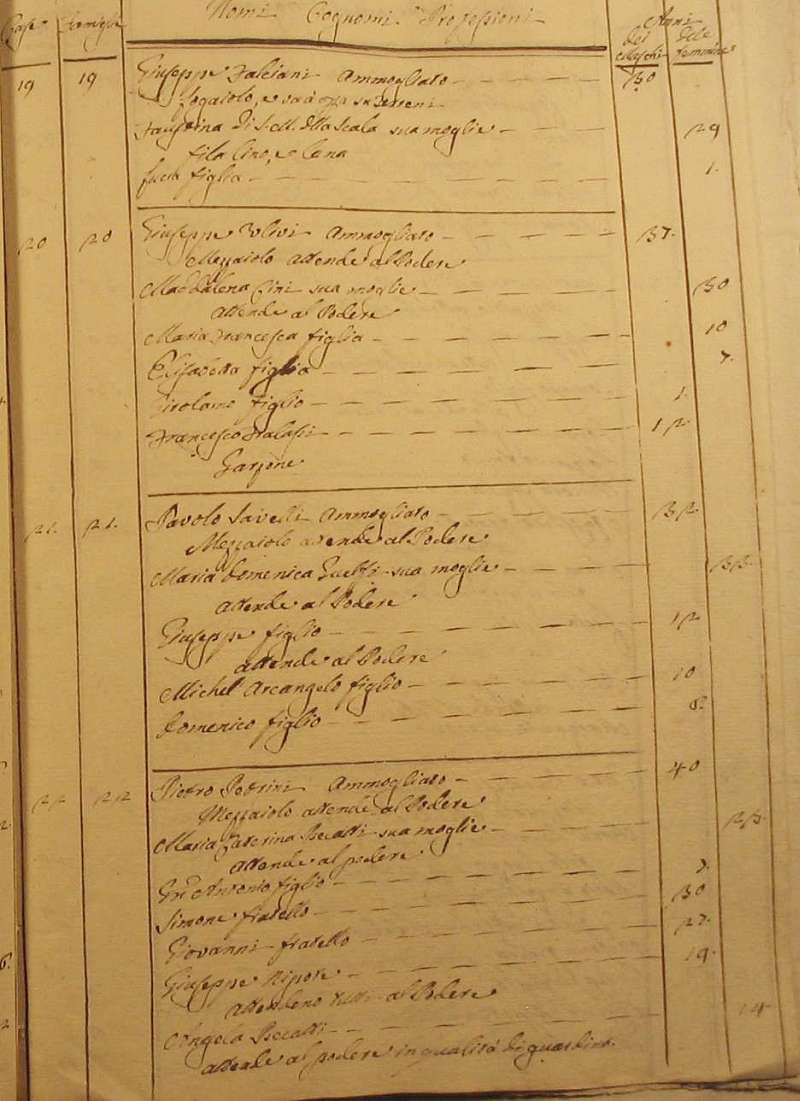 Case Famiglie Nomi Cognomi Professioni Anni
dei Maschi delle femmine
19 19 Giuseppe Falciani Ammogliato 30
sua moglie 29
fila lino, e lana
figlia 1.
20 20 Giuseppe Ulivi Ammogliato 37.
Mezzaiolo attende al Podere
Maddalena Cini sua moglie 30
attende al Podere
Maria Francesca figlia 10
Elisabetta figlia 7.
Girolamo figlio 1.
Francesco 12
Garzone
21. 21. Pavolo Savelli Ammogliato 32.
Mezzaiolo attende al Podere
Maria Domenica Guelfi sua moglie 33.
attende al Podere
Giuseppe figlio 12
attende al Podere
Michel Arcangelo figlio 10
Domenico figlio
22 22 Pietro Petrini Ammogliato 40
Mezzaiolo attende al Podere
Maria Caterina Beccatti sua moglie 23.
attende al podere
Antonio figlio
Simone fratello 30
Giovanni fratello 27.
Giuseppe Nipote 19.
attendeno tutti al Podere
Angela Beccatti 14
attende al podere in qualità di